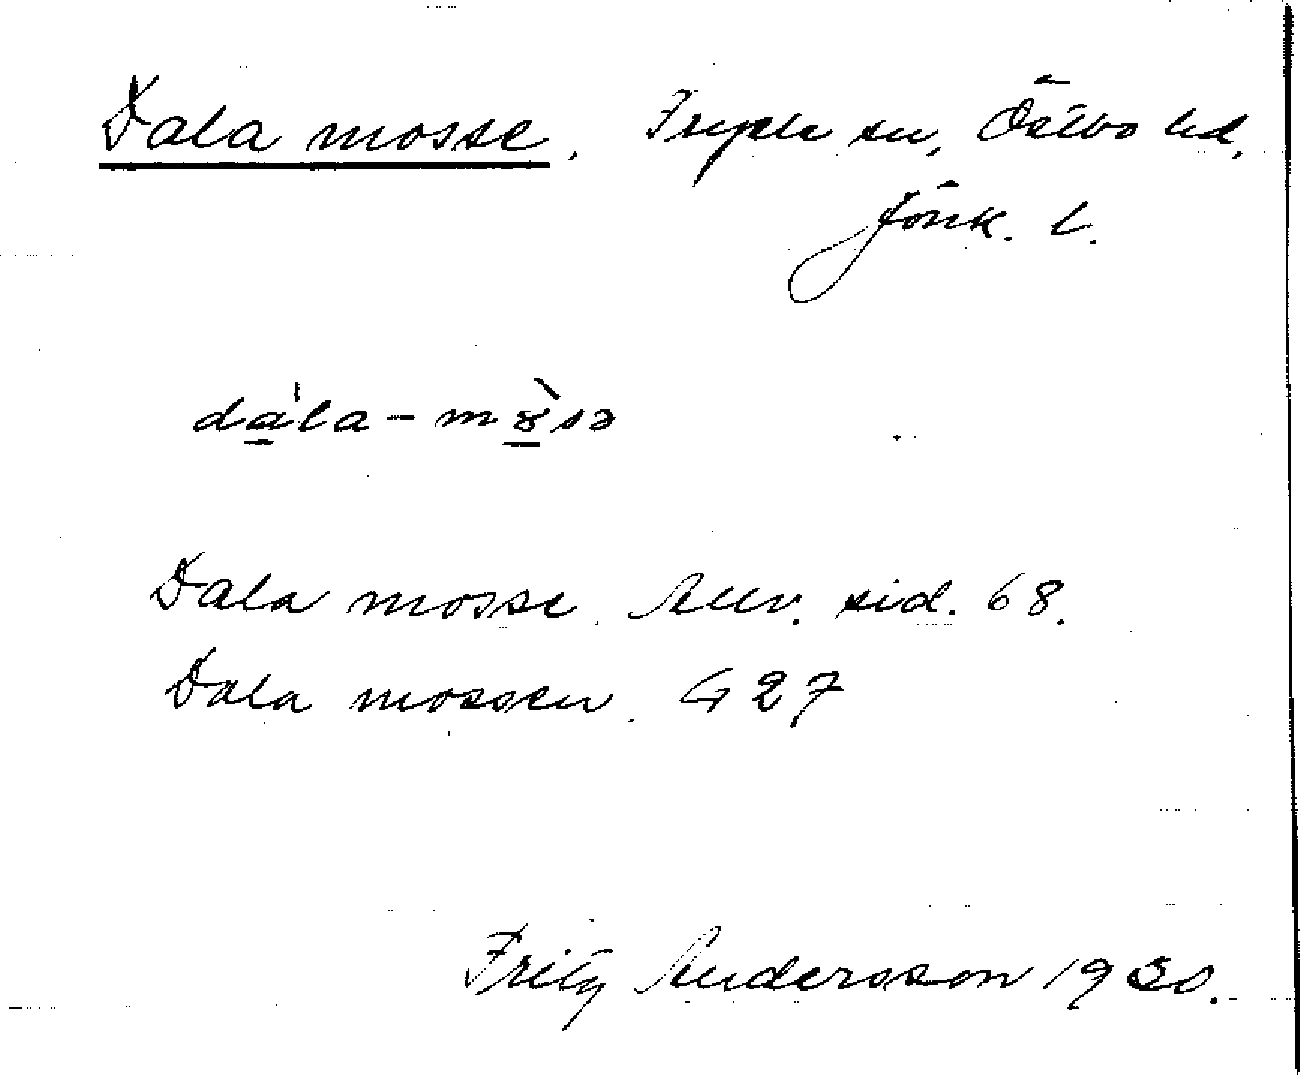 Dala mosse. Fryele sn, Östbo hd,
Jönk. l.
da̲'la - mɤ̲̀sə
Dala mosse. Anv. sid. 68.
Dala mossen. G 27
Fritz Andersson 1930.